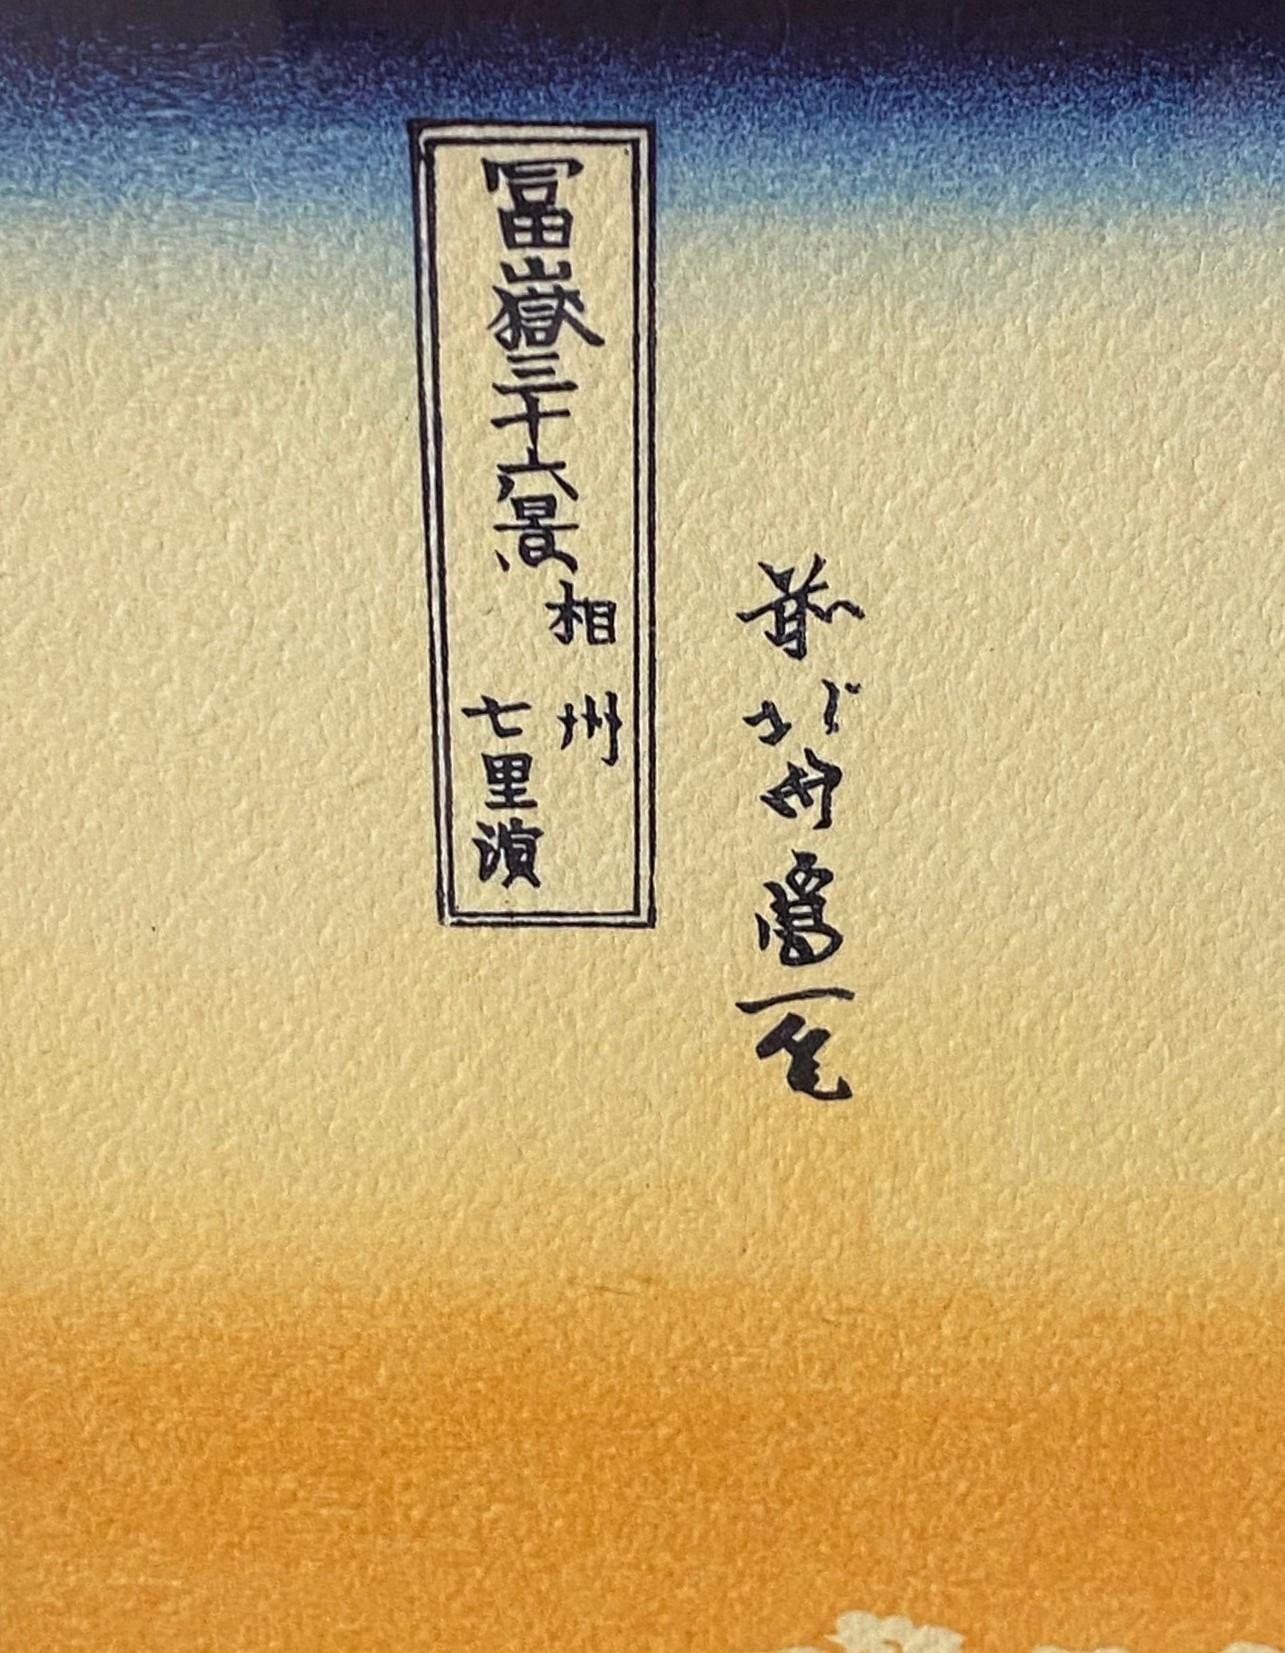 前北斎爲一筆
冨嶽三十六景
相州
七里濵